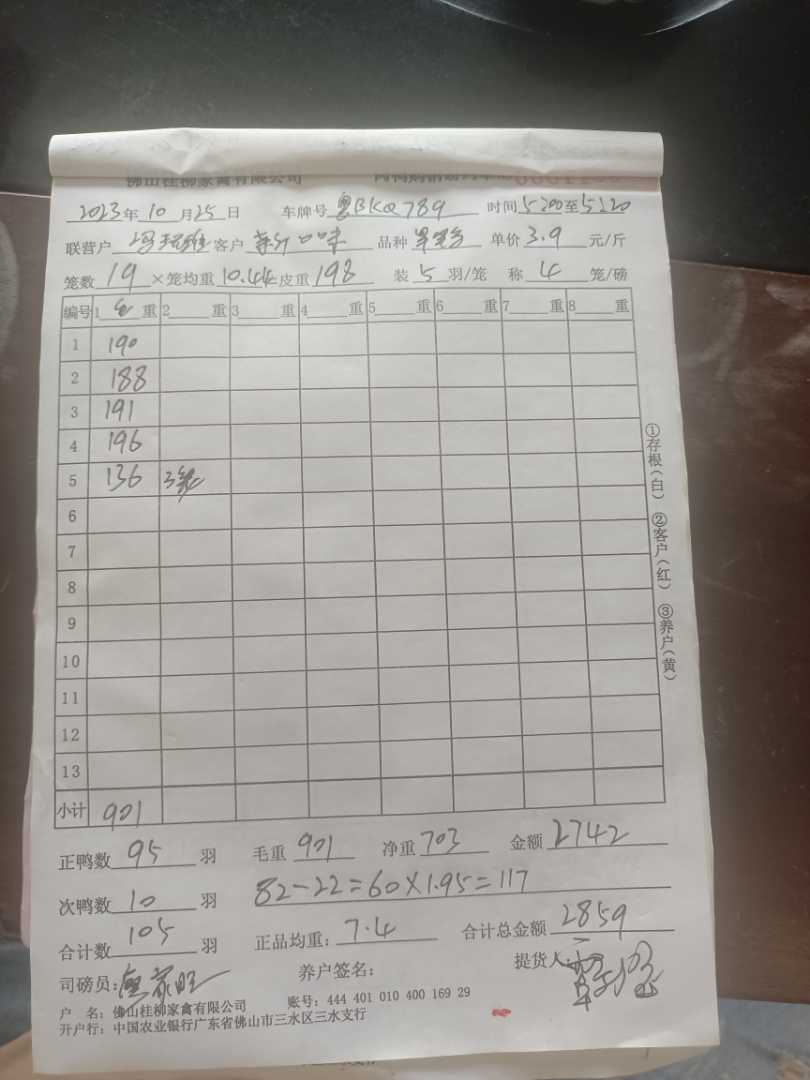 佛山桂柳家禽有限公司
2023年10月25日 车牌号 粤BKQ789 时间 5:200至5:220
联营户 客户 品种 单价 3.9 元/斤
笼数 19 ×笼均重 10.44 皮重 198 装 5 羽/笼 称 4 笼/磅
编号 1 重 2 重 3 重 4 重 5 重 6 重 7 重 8 重
1 190
2 188
3 191
4 196
5 136 3笼
6
7
8
9
10
11
12
13
小计 901
①存根(白) ②客户(红) ③养户(黄)
正鸭数 95 羽 毛重 901 净重 703 金额 2742
次鸭数 10 羽 82-22=60×1.95=117
合计数 105 羽 正品均重: 7.4 合计总金额 2859
司磅员: 养户签名: 提货人:
户 名: 佛山桂柳家禽有限公司 账号: 444 401 010 400 169 29
开户行: 中国农业银行广东省佛山市三水区三水支行